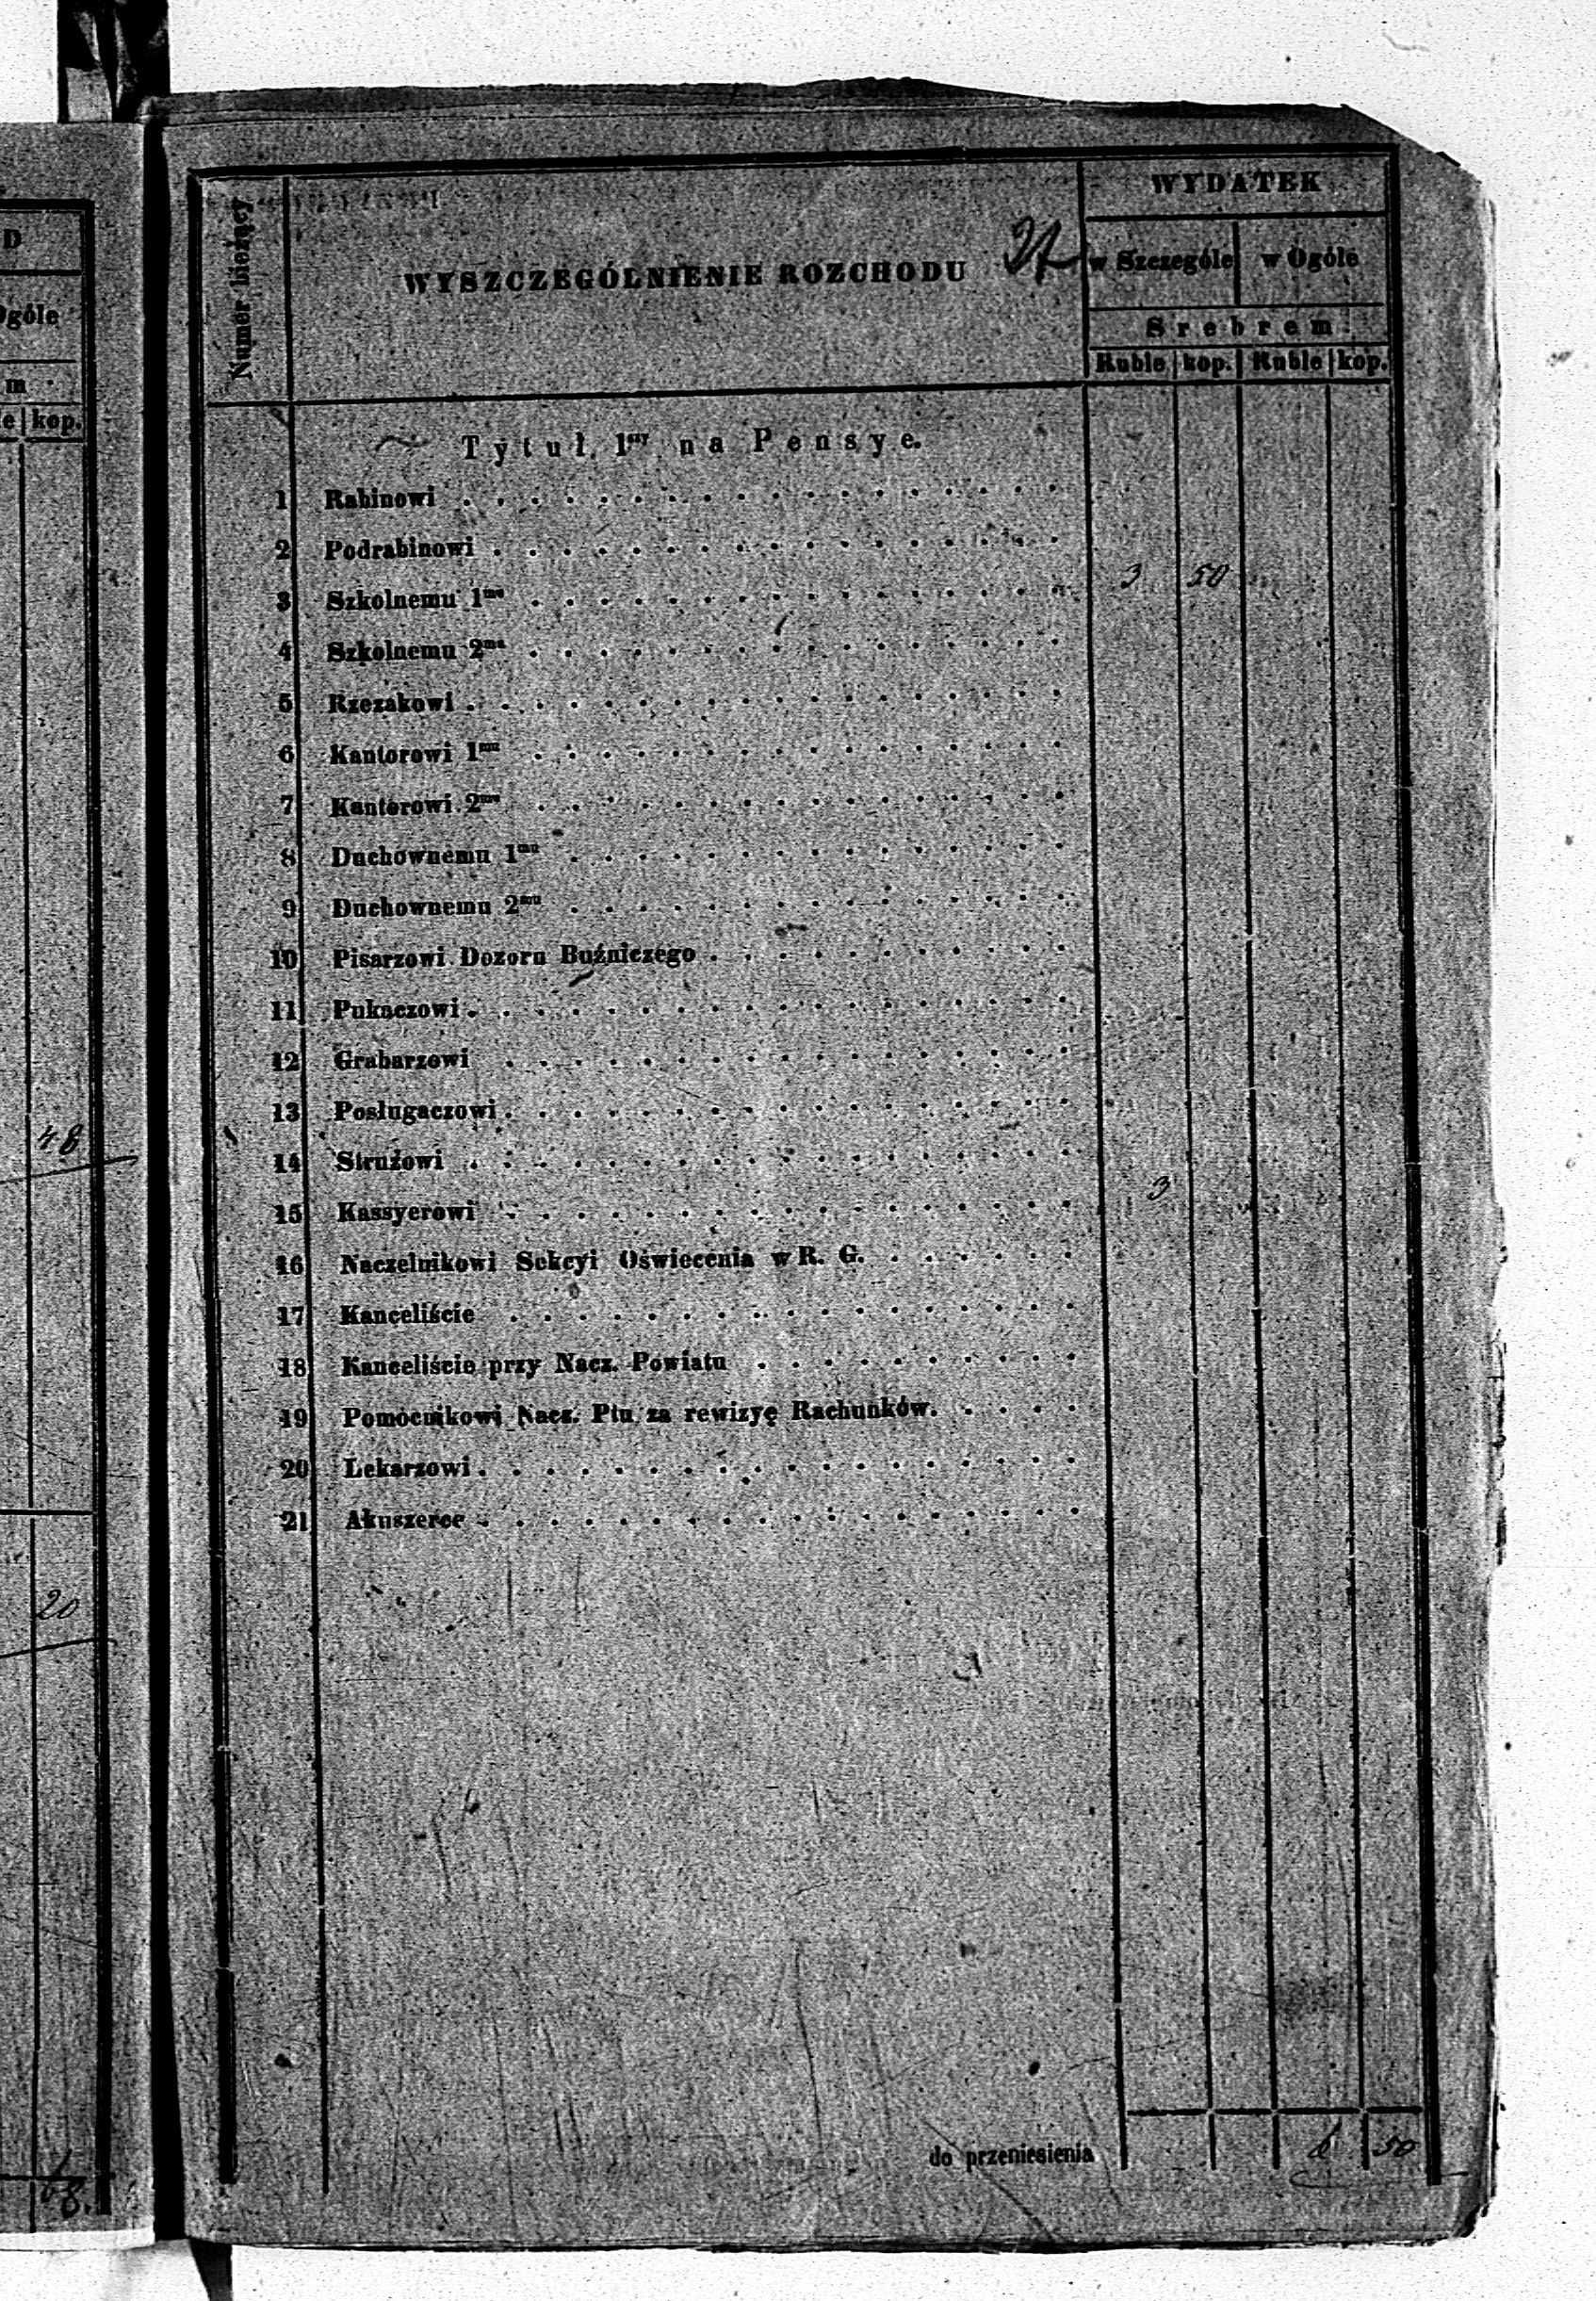 D
Ogóle
m
le kop.
48
20
68.
Numer bieżący
WYSZCZEGÓLNIENIE ROZCHODU
WYDATEK
w Szczególe w Ogóle
Srebrem
Ruble kop. Ruble kop.
Tytuł 1szy na Pensye.
1 Rabinowi
2 Podrabinowi
3 Szkolnemu 1mu 3 50
4 Szkolnemu 2mu
5 Rzezakowi
6 Kantorowi 1mu
7 Kantorowi 2mu
8 Duchownemu 1mu
9 Duchownemu 2mu
10 Pisarzowi Dozoru Bużniczego
11 Pukaczowi
12 Grabarzowi
13 Posługaczowi
14 Stružowi
15 Kassyerowi 3
16 Naczelnikowi Sekcyi Oświecenia w R. G.
17 Kanceliście
18 Kanceliście przy Nacz. Powiatu
19 Pomocnikowi Nacz. Ptu za rewizyę Rachunków.
20 Lekarzowi
21 Akuszerce
do przeniesienia 6 50